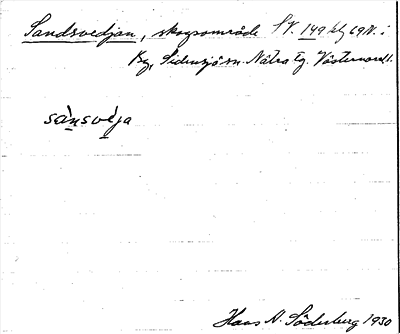 Sandsvedjan, skogsområde SV. 149 blg 69N. i
By, Sidensjö sn. Nätra tg. Västernorrl.
sànsvéja
Hans N. Söderberg 1930